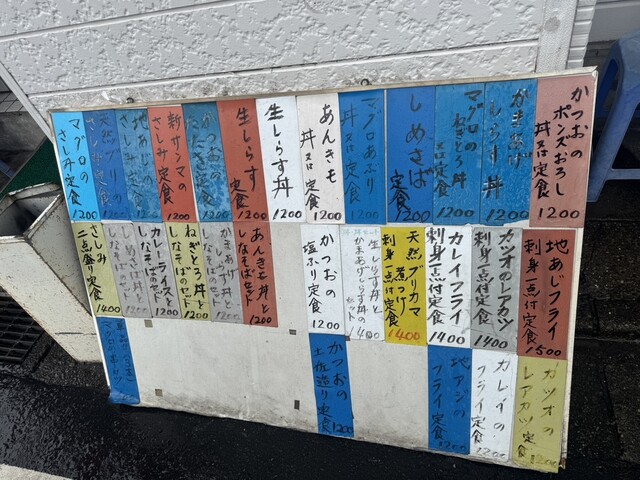 かつおの
ポンズおろし
丼又は定食
1200
かまあげ
しらす丼
1200
マグロの
ねぎとろ丼
又は定食
1200
しめさば
定食
1200
マグロあぶり
丼又は定食
1200
あんきも
丼又は定食
1200
生しらす丼
1200
生しらす
定食
1200
かつおの
たたき定食
1200
新サンマの
さしみ定食
1200
地あじの
さしみ定食
1200
天然ブリの
さしみ定食
1200
マグロの
さしみ定食
1200
地あじフライ
刺身一点付定食
1500
カツオのレアカツ
刺身一点付定食
1400
カレイフライ
刺身一点付定食
1400
天然ブリカマ
煮つけ
刺身定食
1400
生しらす丼と
かまあげしらす丼の
セット
1400
かつおの
塩ふり定食
1200
あんきも丼と
しなそばセット
1200
かまあげ丼と
しなそばセット
1200
ねぎとろ丼と
しなそばのセット
1200
カレーライスと
しなそばのセット
1200
しなそばのセット
1200
さしみ
二点盛り定食
1400
カツオの
レアカツ定食
1200
カレイの
フライ定食
1200
地アジの
フライ定食
1200
かつおの
土佐造り定食
1200